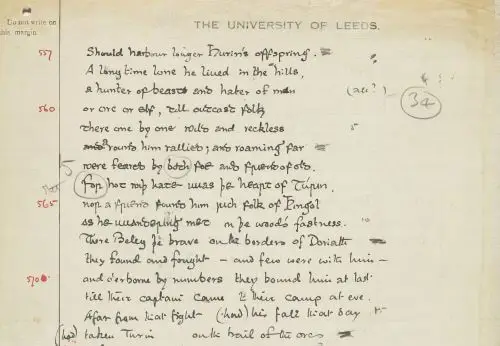 Do not write on this margin
THE UNIVERSITY OF LEEDS.
557 Should harbour longer Húrin's offspring.
A long time lone he lived in the hills,
a hunter of beast and hater of men (all?) 34
560 or orc or elf, till outcast folk
there one by one wild and reckless 5
around him rallied; and roaming far
were feared by both foe and friend of old.
For hot with hate was þe heart of Túrin
565 nor a friend found him such folk of Þingol
as he wandering met in þe wood's fastness.
There Beleg þe brave on the borders of Doriath
they found and fought – and few were with him –
570 and o'erborne by numbers they bound him at last
till their captain came to their camp at eve.
Afar from that fight (had) his fall that day
(had) taken Turin on the trail of the orcs